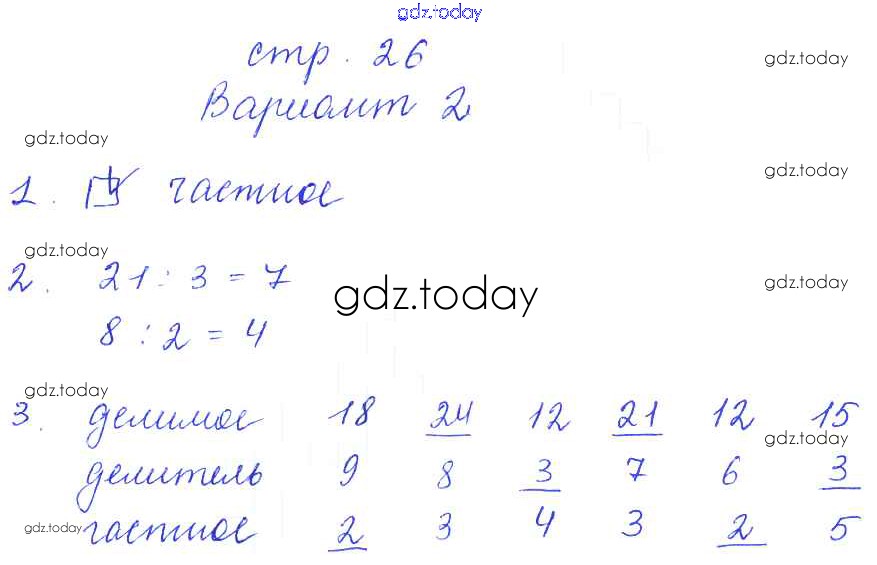 gdz.today
стр. 26
gdz.today
Вариант 2
gdz.today
gdz.today
1. частное
gdz.today
2. 21 : 3 = 7
gdz.today
gdz.today
8 : 2 = 4
gdz.today
3. делимое 18 24 12 21 12 15
gdz.today
делитель 9 8 3 7 6 3
gdz.today
частное 2 3 4 3 2 5